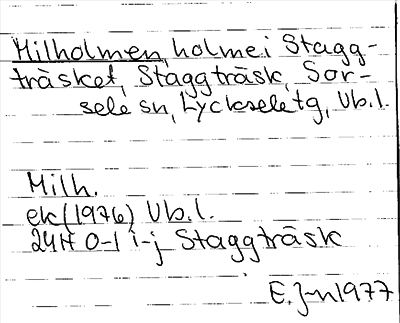 Milholmen, holme i Stagg-
träsket, Staggträsk, Sor-
sele sn, Lycksele tg, Vb.l.
Milh.
ek (1976) Vb.l.
24H 0-1 i-j Staggträsk
E. J-n 1977